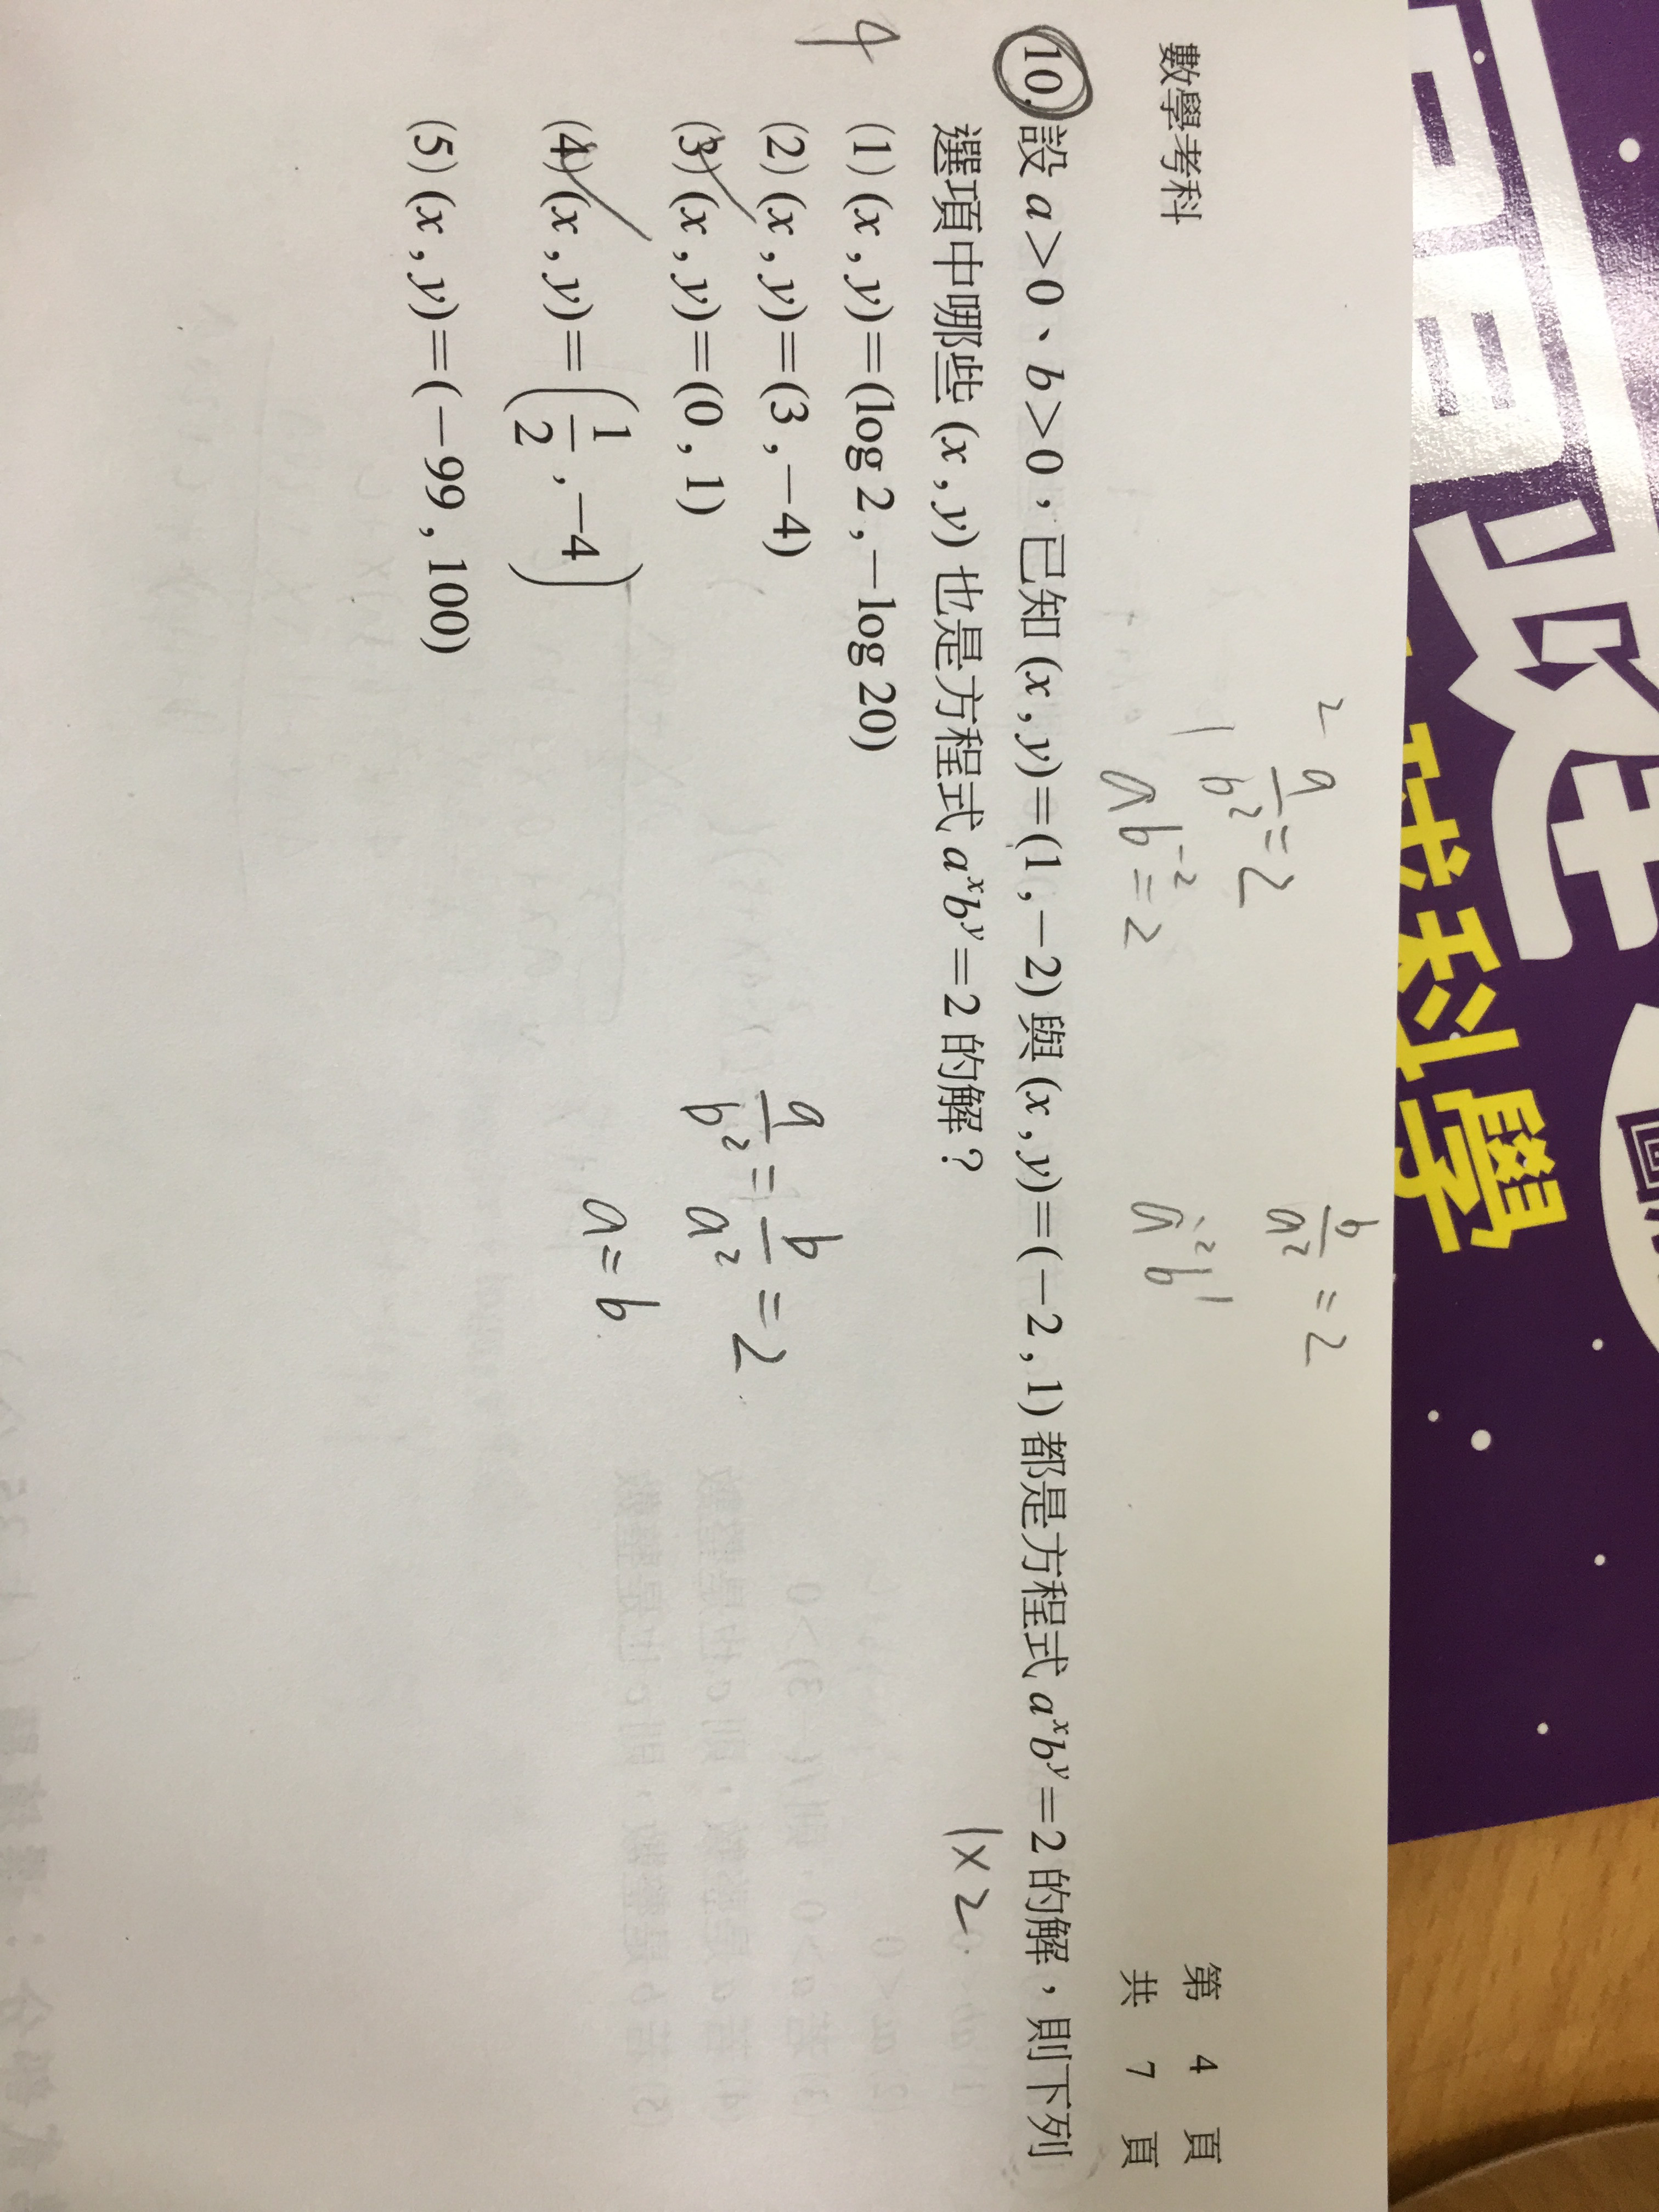 數學考科
第 4 頁
共 7 頁
2 a/b² = 2
b/a² = 2
ab⁻² = 2
a⁻²b¹
10. 設 a>0、b>0，已知 (x , y)=(1 , −2) 與 (x , y)=(−2 , 1) 都是方程式 aˣbʸ=2 的解，則下列
選項中哪些 (x , y) 也是方程式 aˣbʸ=2 的解？
1×2
(1) (x , y)=(log 2 , −log 20)
(2) (x , y)=(3 , −4)
(3) (x , y)=(0 , 1)
(4) (x , y)=(1/2 , −4)
(5) (x , y)=(−99 , 100)
a/b² = b/a² = 2
a = b
科學